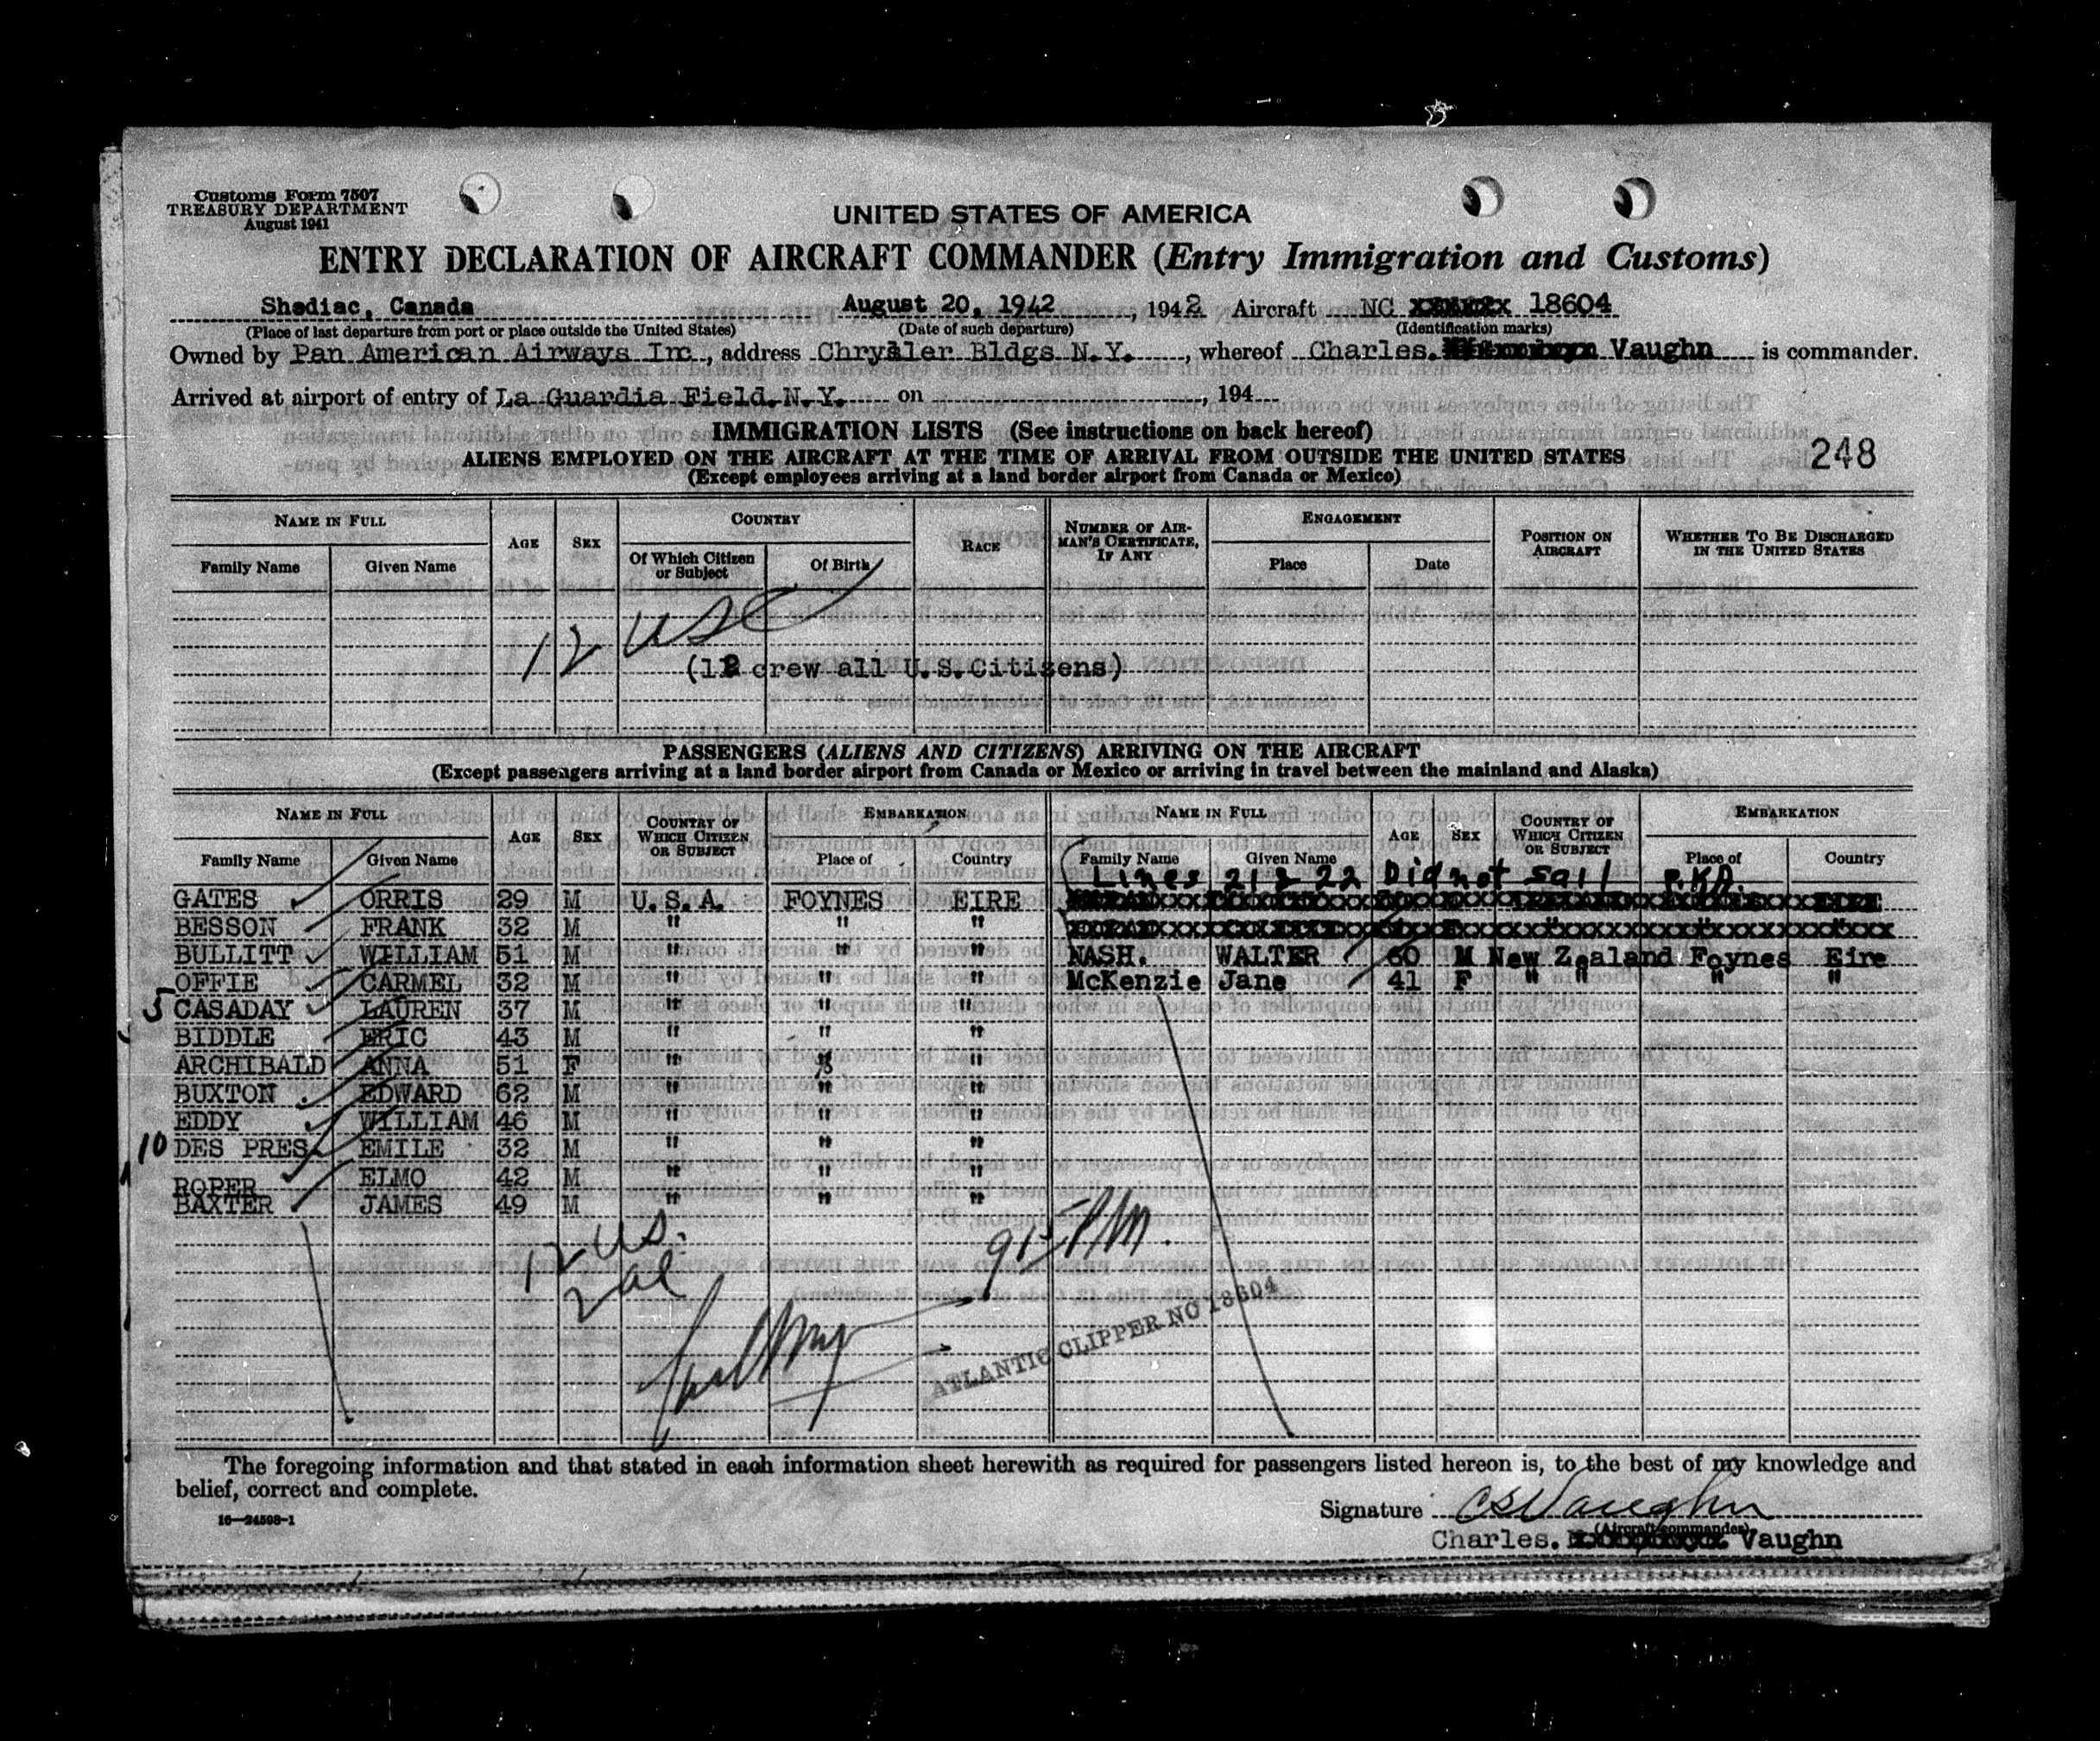 Customs Form 7507
TREASURY DEPARTMENT
August 1941
UNITED STATES OF AMERICA
ENTRY DECLARATION OF AIRCRAFT COMMANDER (Entry Immigration and Customs)
Shediac, Canada August 20, 1942, 1942 Aircraft NC 18604
(Place of last departure from port or place outside the United States) (Date of such departure) (Identification marks)
Owned by Pan American Airways Inc, address Chrysler Bldgs N.Y., whereof Charles. Vaughn is commander.
Arrived at airport of entry of La Guardia Field. N.Y. on , 194
IMMIGRATION LISTS (See instructions on back hereof)
ALIENS EMPLOYED ON THE AIRCRAFT AT THE TIME OF ARRIVAL FROM OUTSIDE THE UNITED STATES 248
(Except employees arriving at a land border airport from Canada or Mexico)
NAME IN FULL AGE SEX COUNTRY RACE NUMBER OF AIRMAN'S CERTIFICATE, IF ANY ENGAGEMENT POSITION ON AIRCRAFT WHETHER TO BE DISCHARGED IN THE UNITED STATES
Family Name Given Name Of Which Citizen or Subject Of Birth Place Date
12 USC
(12 crew all U.S.Citizens)
PASSENGERS (ALIENS AND CITIZENS) ARRIVING ON THE AIRCRAFT
(Except passengers arriving at a land border airport from Canada or Mexico or arriving in travel between the mainland and Alaska)
NAME IN FULL AGE SEX COUNTRY OF WHICH CITIZEN OR SUBJECT EMBARKATION NAME IN FULL AGE SEX COUNTRY OF WHICH CITIZEN OR SUBJECT EMBARKATION
Family Name Given Name Place of Country Family Name Given Name Place of Country
Lines 21 & 22 Did not sail
GATES ORRIS 29 M U.S.A. FOYNES EIRE
BESSON FRANK 32 M " " "
BULLITT WILLIAM 51 M " " " NASH. WALTER 60 M New Zealand Foynes Eire
OFFIE CARMEL 32 M " " " McKenzie Jane 41 F " " " "
5 CASADAY LAUREN 37 M " " "
BIDDLE ERIC 43 M " " "
ARCHIBALD ANNA 51 F " " "
BUXTON EDWARD 62 M " " "
EDDY WILLIAM 46 M " " "
10 DES PRES. EMILE 32 M " " "
ROPER ELMO 42 M " " "
BAXTER JAMES 49 M " " "
12 US.
2 al
915 PM.
ATLANTIC CLIPPER NC 18604
The foregoing information and that stated in each information sheet herewith as required for passengers listed hereon is, to the best of my knowledge and
belief, correct and complete.
16—24598-1
Signature CSVaughn
(Aircraft commander)
Charles. Vaughn